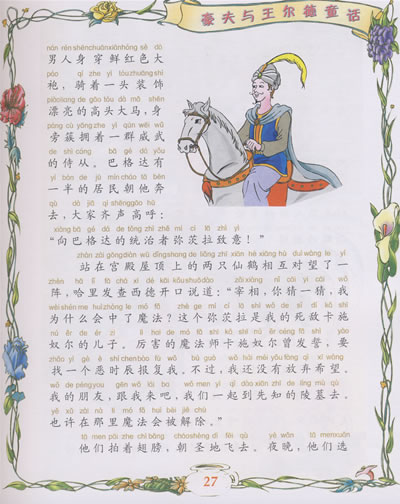 豪夫与王尔德童话
nán rén shēn chuān xiān hóng sè dà
男人身穿鲜红色大
páo qí zhe yì tóu zhuāng shì
袍，骑着一头装饰
piào liang de gāo tóu dà mǎ shēn
漂亮的高头大马，身
páng cù yōng zhe yì qún wēi wǔ
旁簇拥着一群威武
de shì cóng bā gé dá yǒu
的侍从。巴格达有
yí bàn de jū mín cháo tā bēn
一半的居民朝他奔
qù dà jiā qí shēng gāo hū
去，大家齐声高呼：
xiàng bā gé dá de tǒng zhì zhě mí cí lā zhì yì
“向巴格达的统治者弥茨拉致意！”
zhàn zài gōng diàn wū dǐng shang de liǎng zhī xiān hè xiāng hù duì wàng le yí
站在宫殿屋顶上的两只仙鹤相互对望了一
zhèn hā lǐ fā chá xī dé kāi kǒu shuō dào zǎi xiàng nǐ cāi yì cāi wǒ
阵，哈里发查西德开口说道：“宰相，你猜一猜，我
wèi shén me huì zhòng le mó fǎ zhè ge mí cí lā shì wǒ de sǐ dí kǎ shī
为什么会中了魔法？这个弥茨拉是我的死敌卡施
nú ěr de ér zi lì hai de mó fǎ shī kǎ shī nú ěr céng fā shì yào
奴尔的儿子。厉害的魔法师卡施奴尔曾发誓，要
zhǎo yí gè è shí chen bào fù wǒ bú guò wǒ hái méi yǒu fàng qì xī wàng
找一个恶时辰报复我。不过，我还没有放弃希望。
wǒ de péng you gēn wǒ lái ba wǒ men yì qǐ dào xiān zhī de líng mù qù
我的朋友，跟我来吧，我们一起到先知的陵墓去。
yě xǔ zài nà li mó fǎ huì bèi jiě chú
也许在那里魔法会被解除。”
tā men pāi zhe chì bǎng cháo shèng dì fēi qù yè wǎn tā men xuǎn
他们拍着翅膀，朝圣地飞去。夜晚，他们选
27